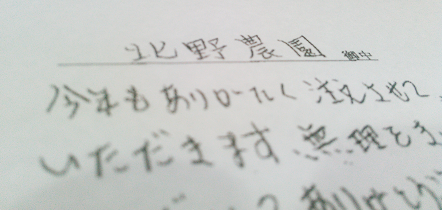 北野農園 御中
今年もありがたく注文させて
いただきます 無理をま
ありがとう